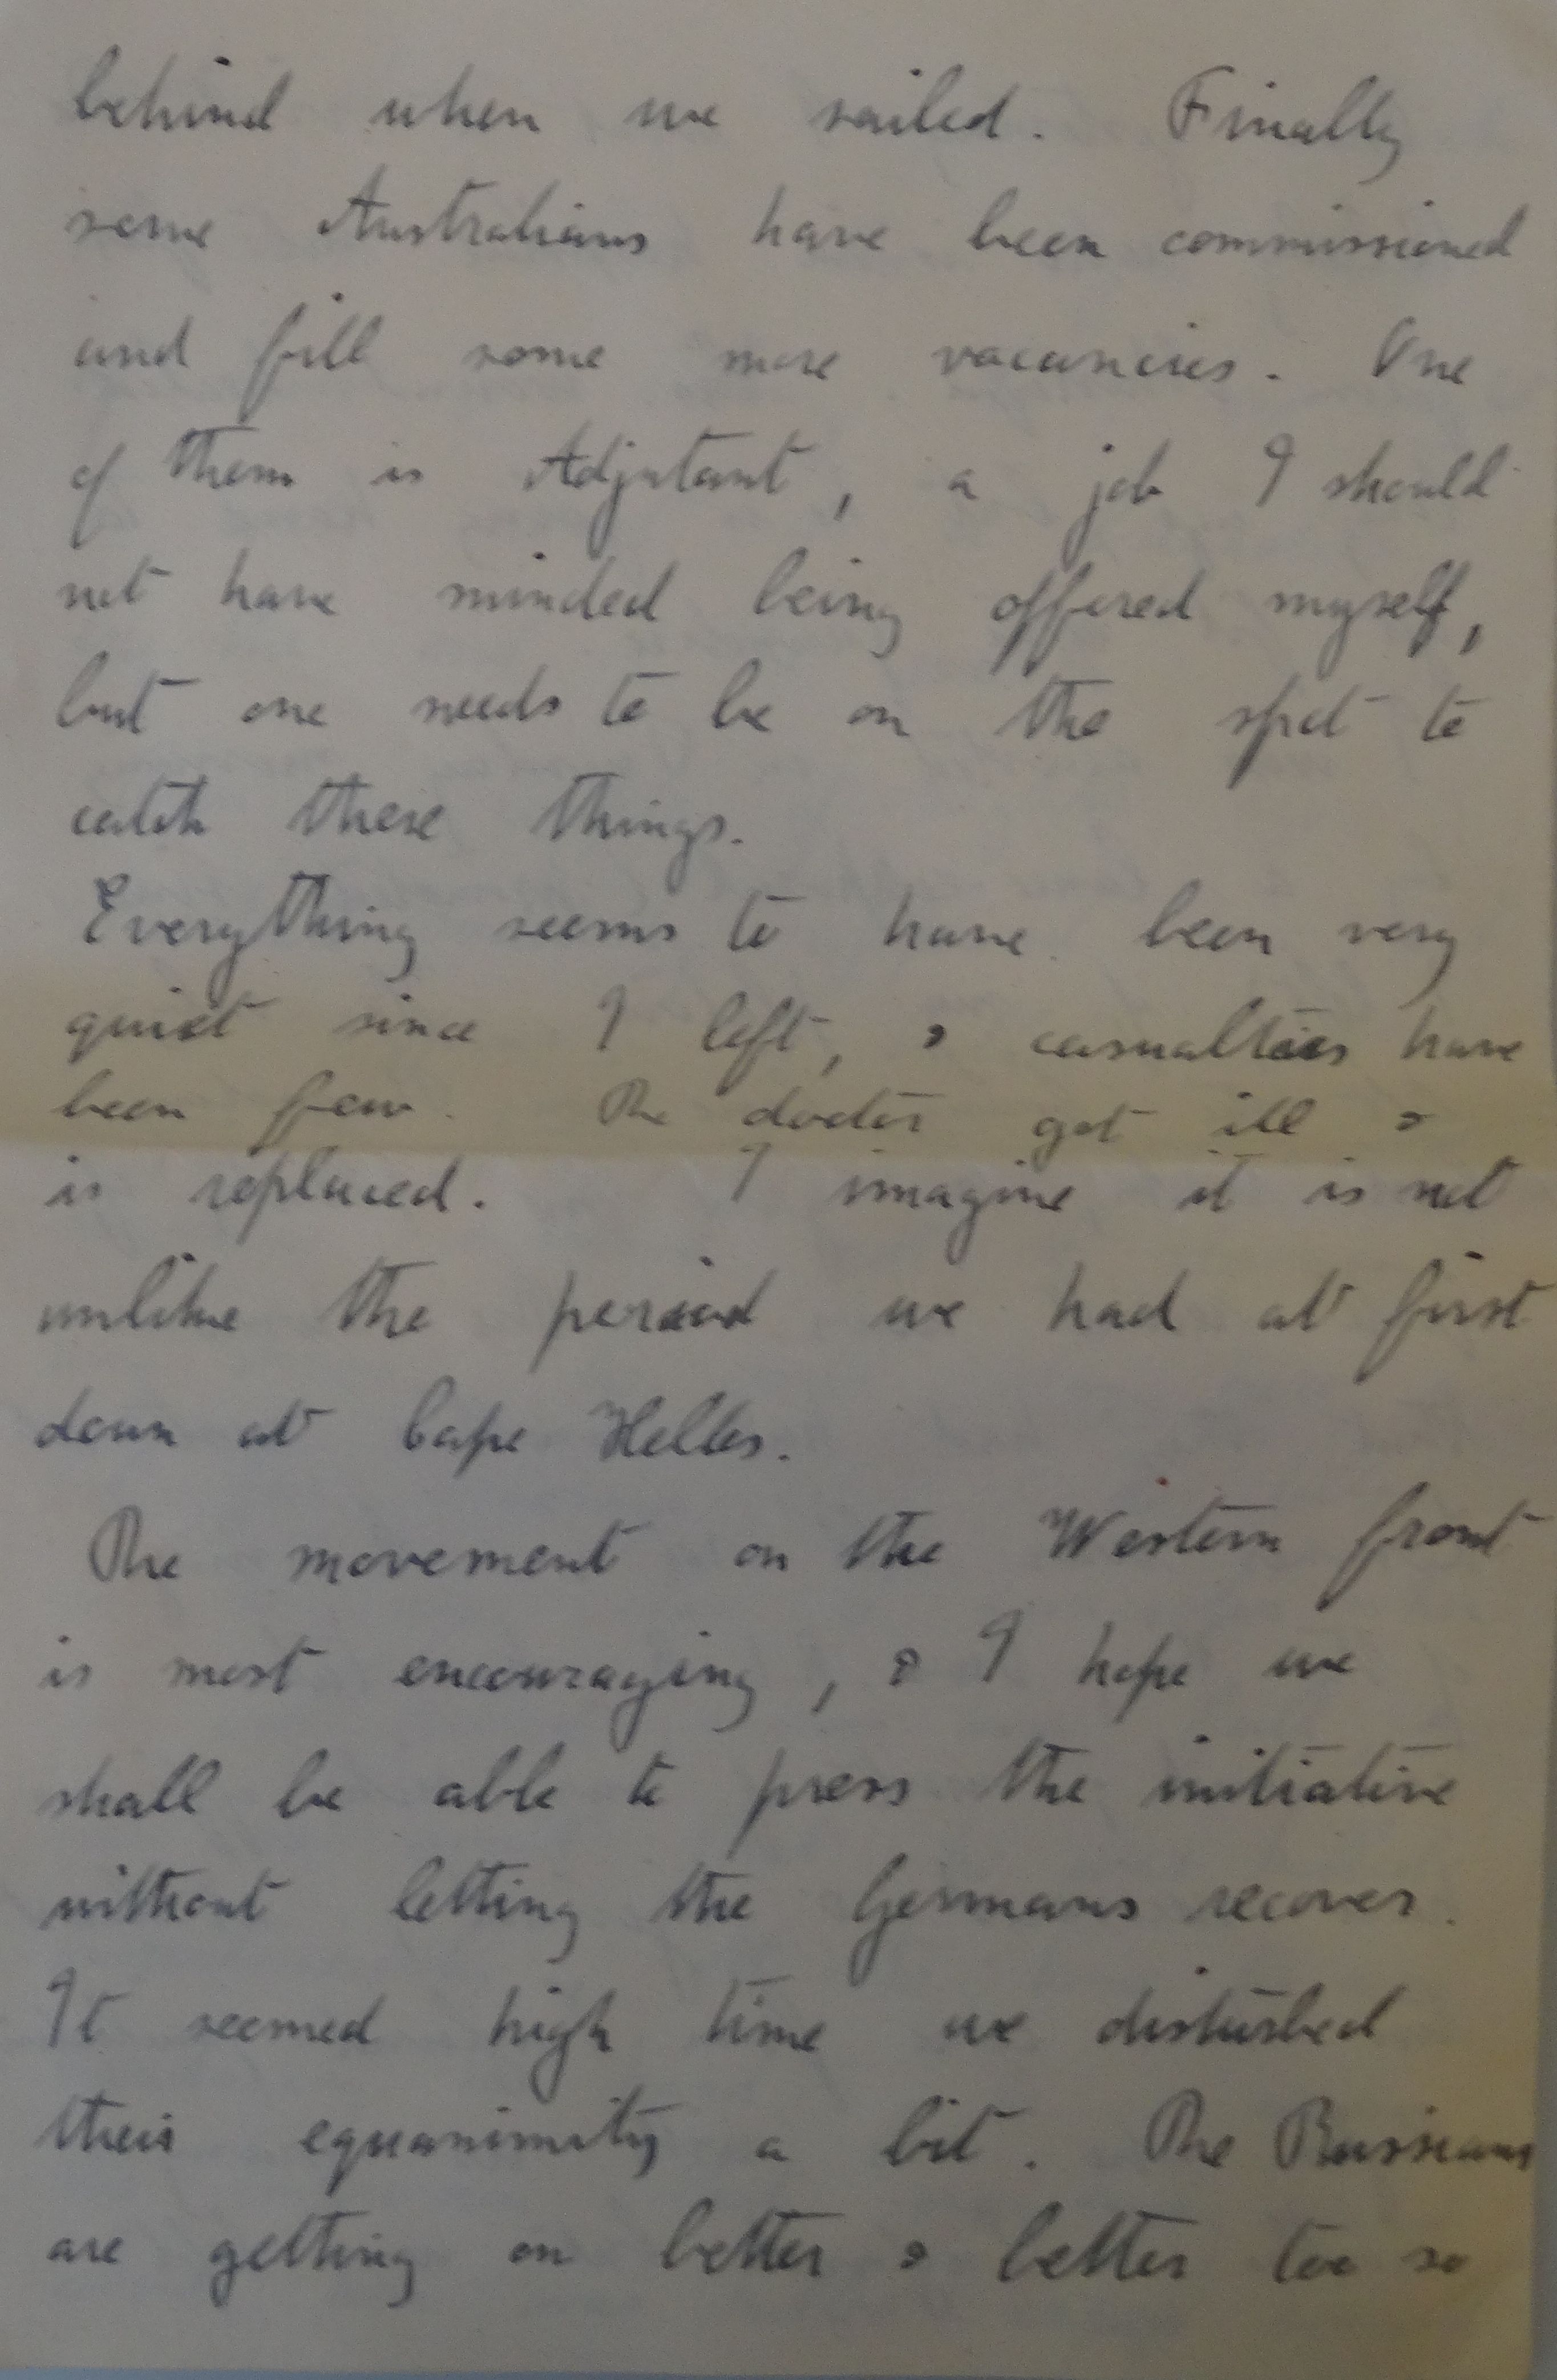 behind when we sailed. Finally
some Australians have been commissioned
and fill some more vacancies. One
of them is Adjutant, a job I should
not have minded being offered myself,
but one needs to be on the spot to
catch these things.
Everything seems to have been very
quiet since I left, & casualties have
been few. The doctor got ill &
is replaced. I imagine it is not
unlike the period we had at first
down at Cape Helles.
The movement on the Western front
is most encouraging, & I hope we
shall be able to press the initiative
without letting the Germans recover.
It seemed high time we disturbed
their equanimity a bit. The Russians
are getting on better & better too so